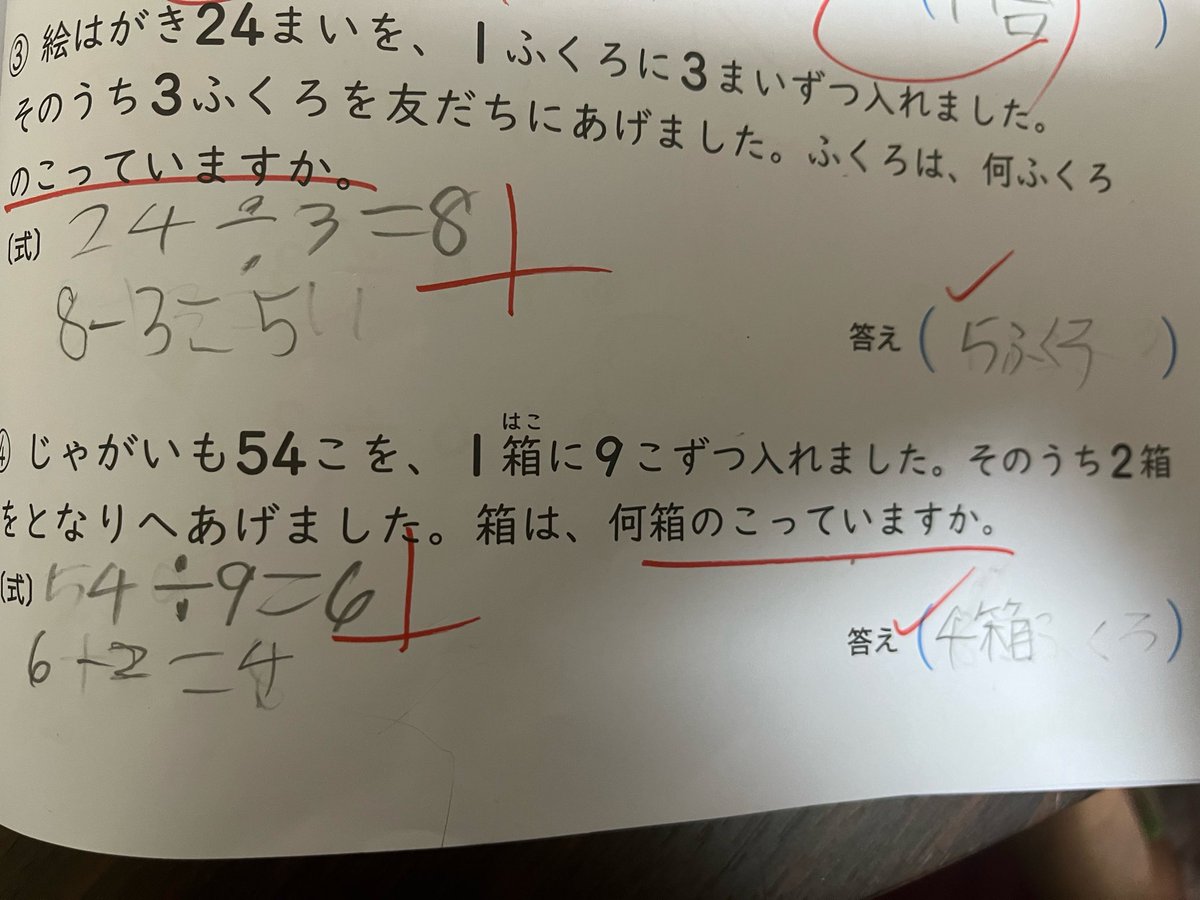 ③ 絵はがき24まいを、1ふくろに3まいずつ入れました。
そのうち3ふくろを友だちにあげました。ふくろは、何ふくろ
のこっていますか。
(式) 24÷3=8
8-3=5
答え (5ふくろ)
④ じゃがいも54こを、1箱に9こずつ入れました。そのうち2箱
はこ
をとなりへあげました。箱は、何箱のこっていますか。
(式) 54÷9=6
6+2=4
答え (4箱)